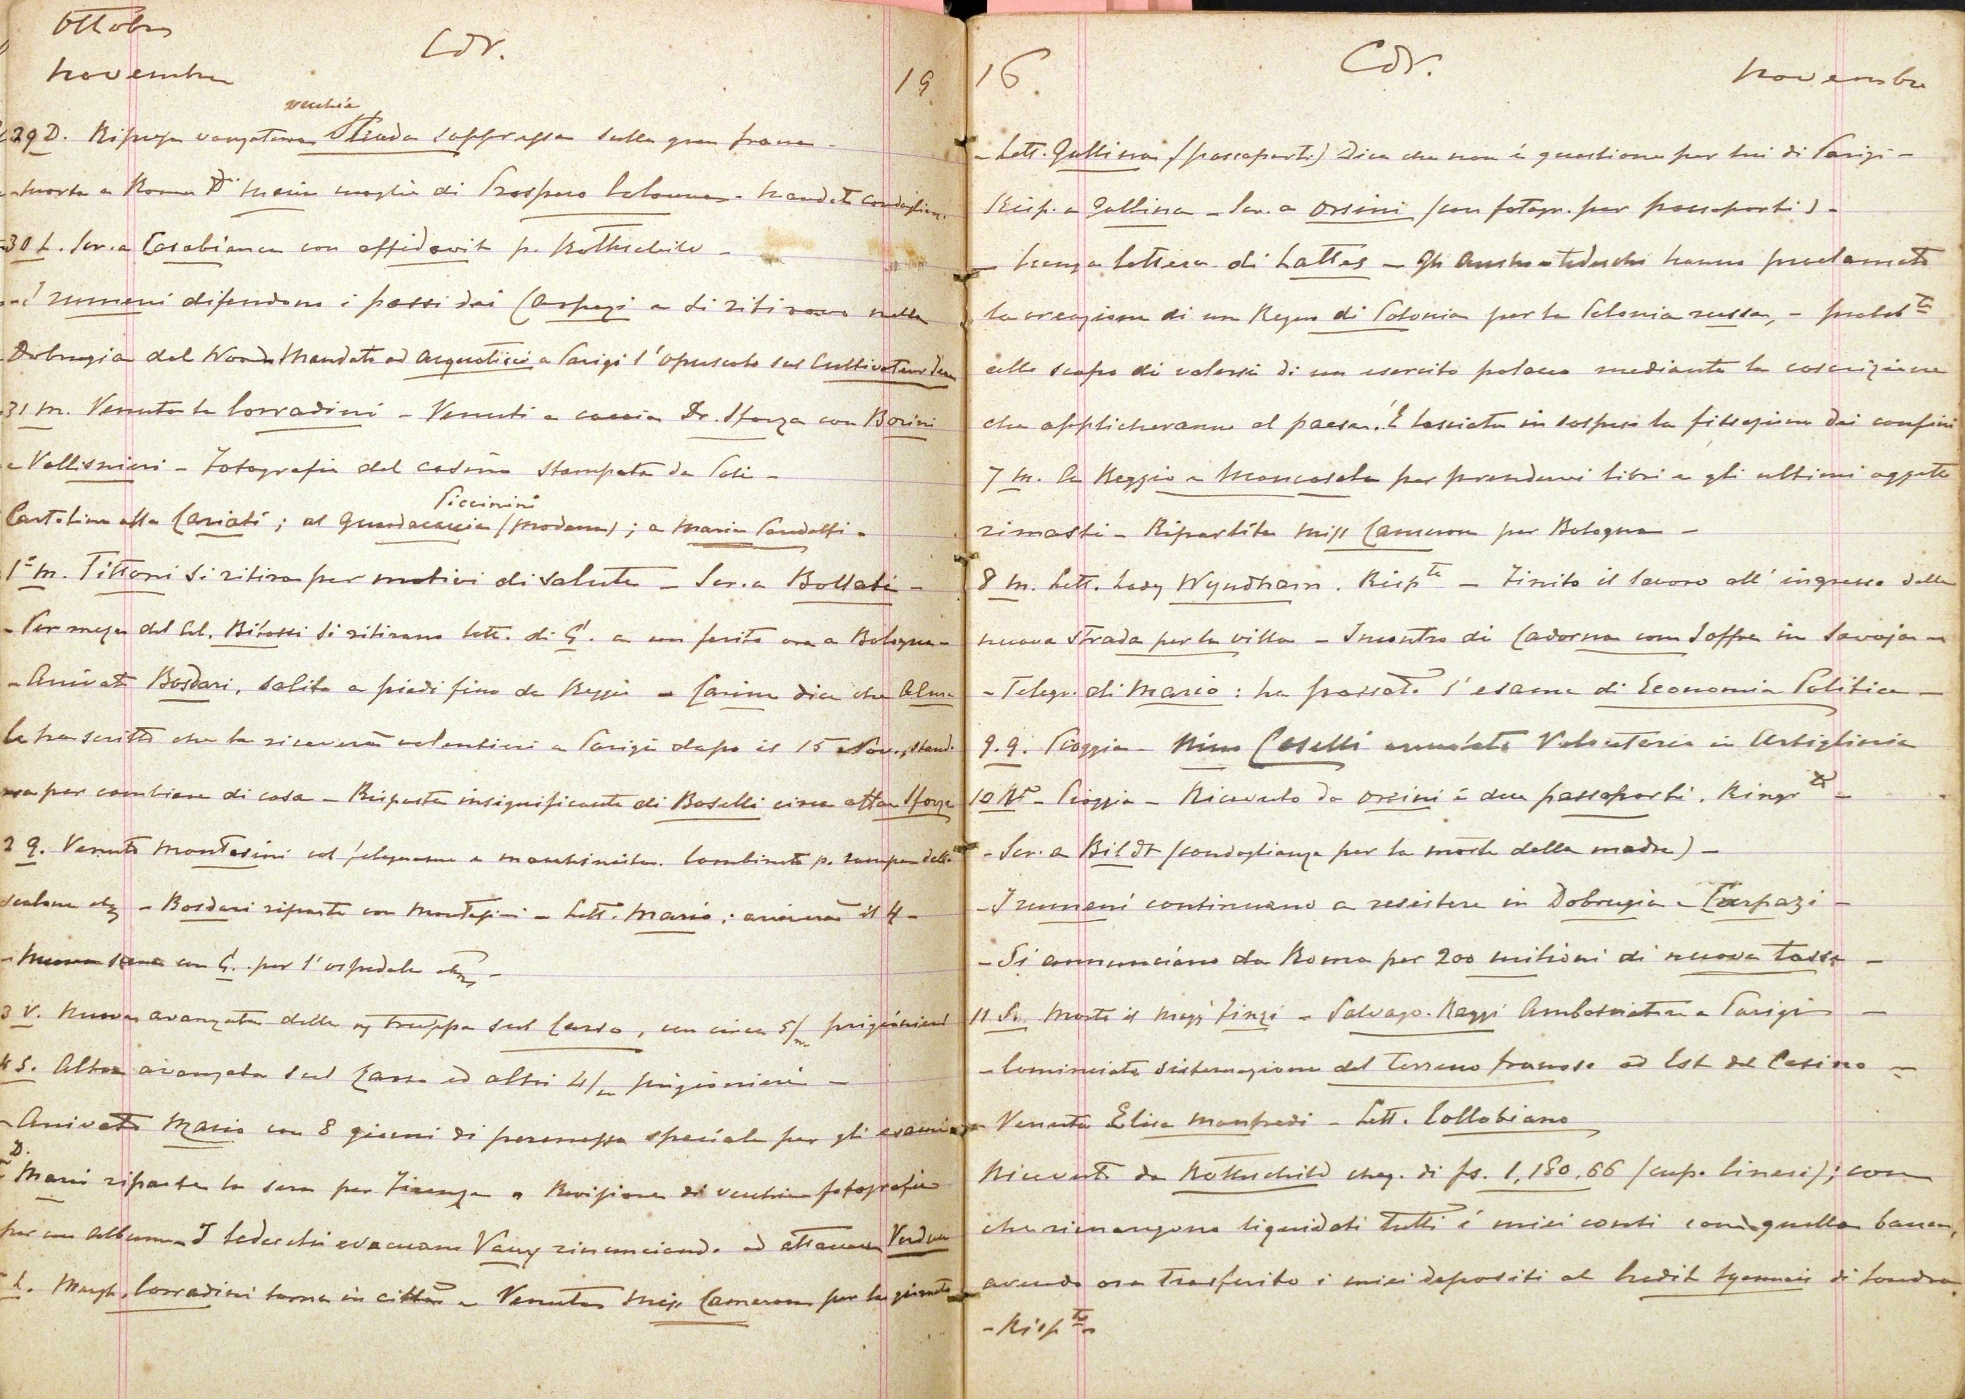 Ottobre
Novembre
CdV.
19
29 D. Ripresa vangatura vecchia Strada soppressa sulla gran frana -
- Morta a Roma Dª Maria moglie di Prospero Colonna. Mandate condoglianze.
30 L. Scr. a Casabianca con affidavit p. Rothschild -
- I rumeni difendono i passi dei Carpazi e si ritirano nella
Dobrugia del Nord. Mandato ad Acquaticci a Parigi l'opuscolo sul Cultivateur
31 M. Venuta la Corradini - Venuti a caccia Dr. Sforza con Borini
e Vallisnieri - Fotografia del casino stampata da Poli -
Piccinini
Cartolina alla Cariati; al Guardacaccia (Modena); a Maria Pandolfi -
1º M. Tittoni si ritira per motivi di salute - Scr. a Bollati -
- Per mezzo del Col. Bitossi si ritirano lett. di G. a un ferito ora a Bologna -
- Arrivato Bosdari, salito a piedi fino da Reggio - Carina dice che
le ha scritto che la riceverà volentieri a Parigi dopo il 15 Nov.,
per cambiare di casa - Risposta insignificante di Boselli circa Sforza
2 G. Venuto Montesini col falegname e macchinista. Combinato p. rampa della
scalone etc - Bosdari riparte con Montesini - Lettª Mario; arriverà il 4 -
- con G. per l'ospedale etc -
3 V. Nuova avanzata delle ns truppe sul Carso, con circa 5/m prigionieri
4 S. Altra avanzata sul Carso ed altri 4/m prigionieri -
- Arrivato Mario con 8 giorni di permesso speciale per gli esami
D. Mario riparte la sera per Firenze - Revisione di vecchie fotografie
per un album - I tedeschi evacuano Vaux rinunciando ad attaccare Verdun
L. Margh. Corradini torna in città - Venuta Miss Cameron per la giornata
16
CdV.
Novembre
- Lett. Gallina (passaporti) Dice che non è questione per lui di Parigi -
Risp. a Gallina - Scr. a Orsini (con fotogr. per passaporti) -
- Lunga lettera di Lattes - Gli Austro-tedeschi hanno proclamato
la creazione di un Regno di Polonia per la Polonia russa, - probab.te
allo scopo di valersi di un esercito polacco mediante la coscrizione
che applicheranno al paese. È lasciata in sospeso la fissazione dei confini
7 M. A Reggio e Mancasale per prendervi libri e gli ultimi oggetti
rimasti - Ripartita Miss Cameron per Bologna -
8 M. Lett. Lady Wyndham. Rispta - Finito il lavoro all'ingresso della
nuova Strada per la villa - Incontro di Cadorna con Joffre in Savoja -
- Telegr. di Mario: ha passato l'esame di Economia Politica -
9. G. Pioggia - Nino Caselli Volontario in Artiglieria
10 V. - Pioggia - Ricevuto da Orsini i due passaporti. Ringrto -
- Scr. a Bildt (condoglianze per la morte della madre) -
- I rumeni continuano a resistere in Dobrugia e Carpazi -
- Si annunciano da Roma per 200 milioni di nuove tasse -
11 S. Morto il Magg Finzi - Salvago-Raggi Ambasciatore a Parigi -
- Cominciata sistemazione del terreno franoso ad Est del Casino -
- Venuta Elisa Manfredi - Lett. Collobiano
Ricevuto da Rothschild cheq. di fs. 1,180,66 (cup. Cinesi); con
che rimangono liquidati tutti i miei conti con quella banca,
avendo ora trasferito i miei depositi al Credit Lyonnais di Londra.
- Rispta -